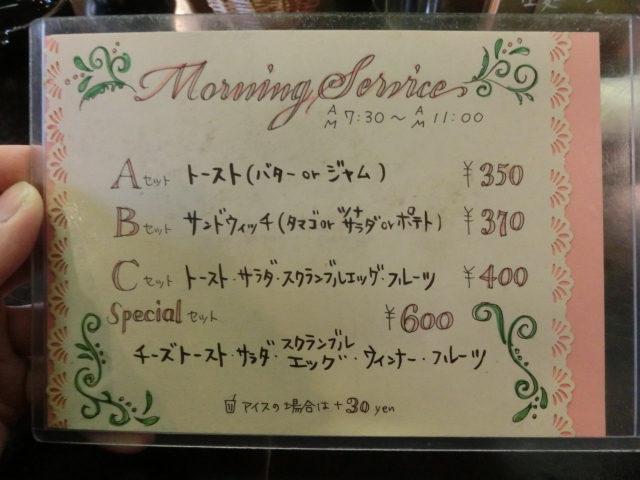 Morning Service
AM 7:30～AM 11:00
Aセット トースト(バター or ジャム) ¥350
Bセット サンドウィッチ(タマゴ or ツナサラダ or ポテト) ¥370
Cセット トースト・サラダ・スクランブルエッグ・フルーツ ¥400
Specialセット ¥600
チーズトースト・サラダ・スクランブルエッグ・ウィンナー・フルーツ
アイスの場合は+30yen